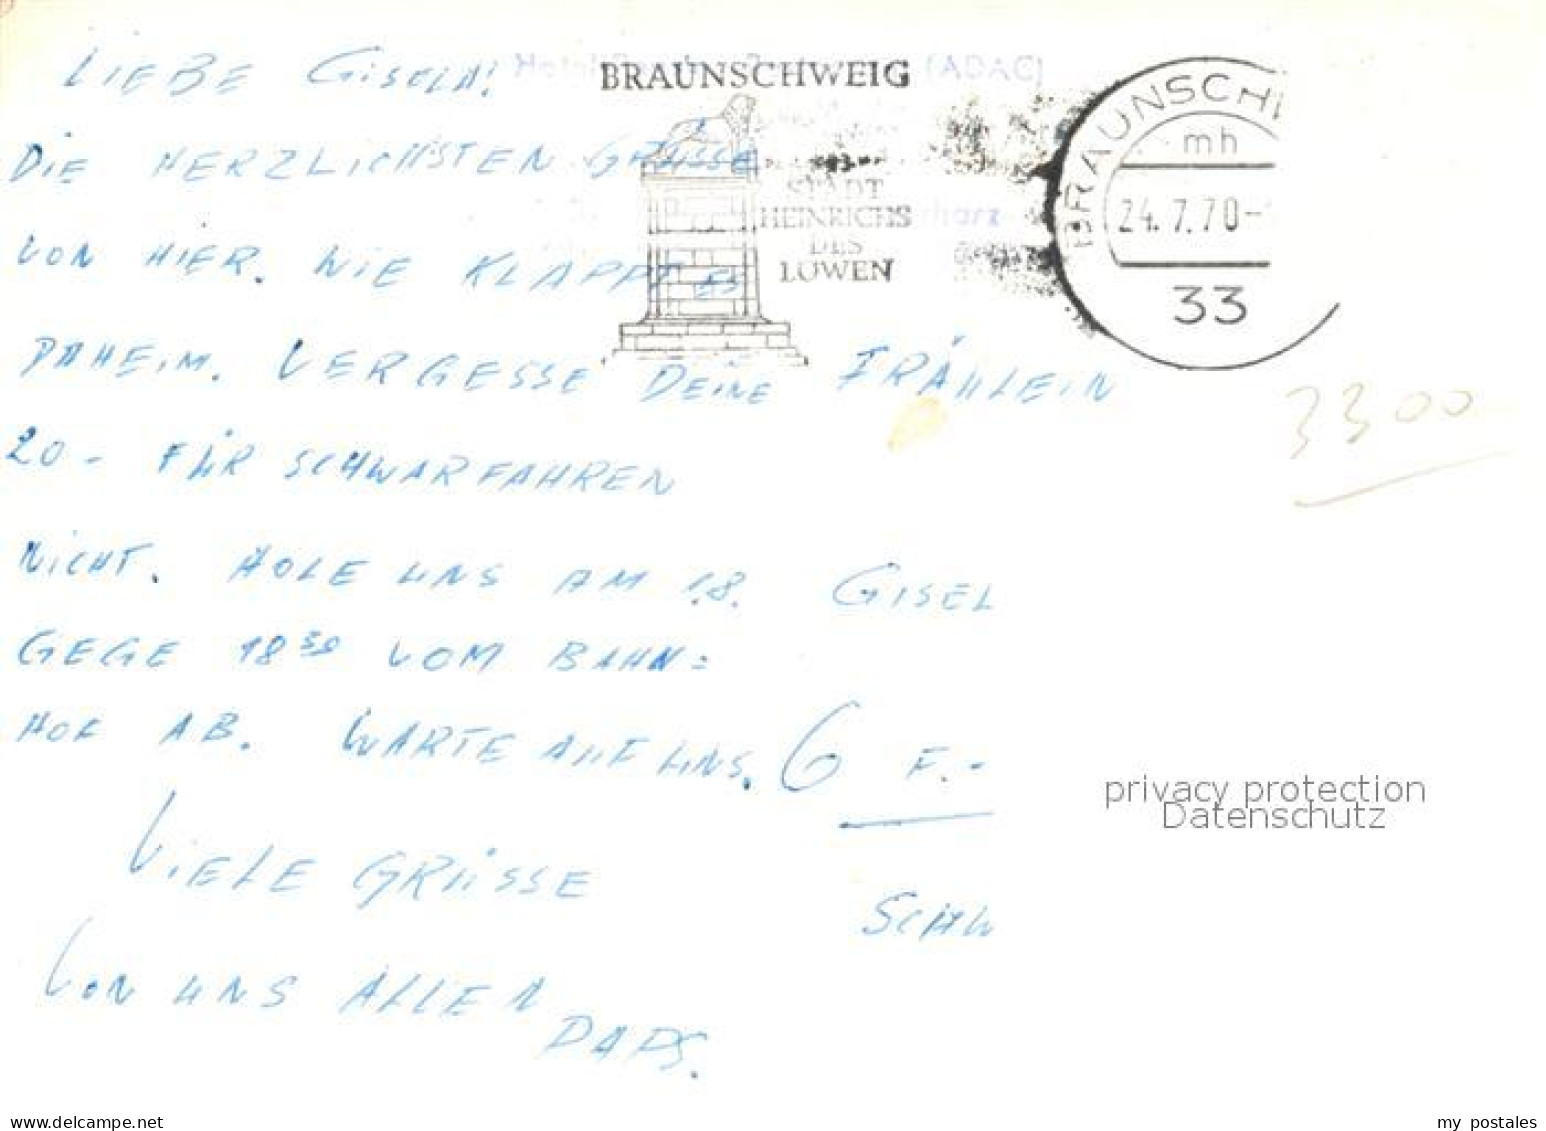 LIEBE GISELA!
DIE HERZLICHSTEN GRÜSSE
VON HIER. WIE KLAPPT ES
DAHEIM. VERGESSE DEINE FRÄULEIN
20- FÜR SCHWARFAHREN
NICHT. HOLE UNS AM 1.8.
GEGE 18 30 VOM BAHN=
HOF AB. WARTE AUF UNS.
VIELE GRÜSSE
VON UNS ALLEN
PAPS.
Hotel (ADAC)
BRAUNSCHWEIG
STADT
HEINRICHS
DES
LÖWEN
rharz
BRAUNSCHW
mh
24.7.70-
33
3300
GISEL
6 F.-
SCHW
privacy protection
Datenschutz
delcampe.net
my postales